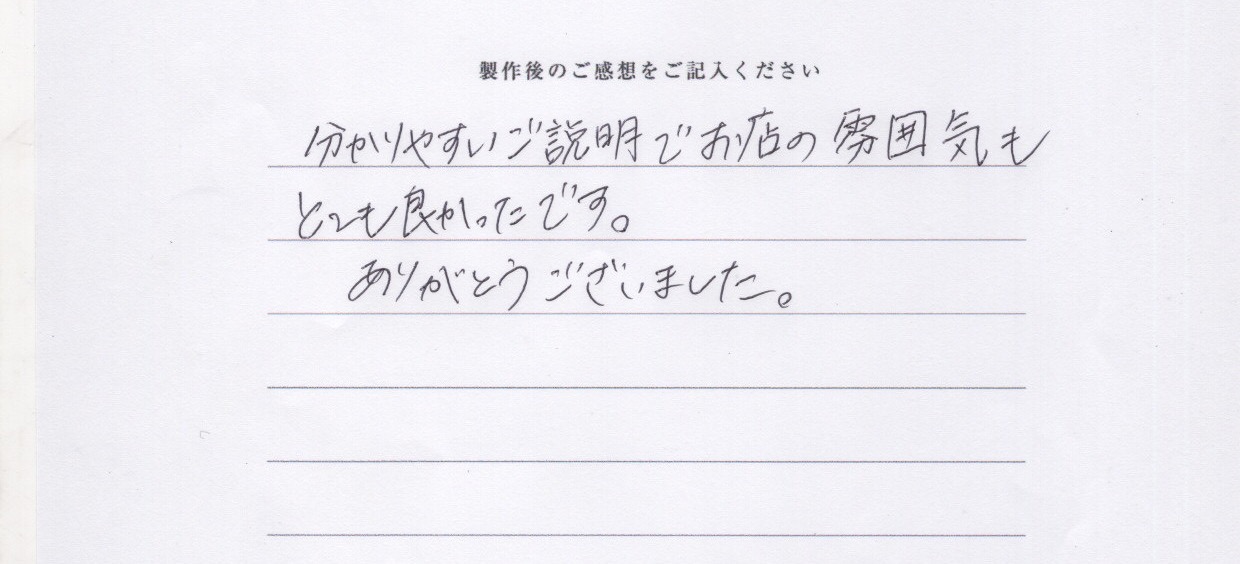 製作後のご感想をご記入ください
分かりやすいご説明でお店の雰囲気も
とても良かったです。
ありがとうございました。